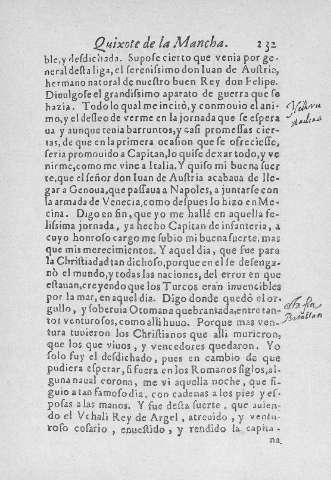 Quixote de la Mancha. 232
ble, y desdichada. Supose cierto que venia por ge-
neral desta liga, el serenissimo don Iuan de Austria,
hermano natural de nuestro buen Rey don Felipe.
Diuulgose el grandissimo aparato de guerra que se
hazia. Todo lo qual me incitó, y conmouio el ani-
mo, y el desseo de verme en la jornada que se espera
ua y aunque tenia barruntos, y casi promessas cier-
tas, de que en la primera ocasion que se ofreciesse,
seria promouido a Capitan, lo quise dexar todo, y ve
nirme, como me vine a Italia. Y quiso mi buena suer
te, que el señor don Iuan de Austria acabaua de lle-
gar a Genoua, que passaua a Napoles, a juntarse con
la armada de Venecia, como despues lo hizo en Me-
cina. Digo en fin, que yo me hallé en aquella fe-
lissima jornada, ya hecho Capitan de infanteria, a
cuyo honroso cargo me subio mi buena suerte, mas
que mis merecimientos. Y aquel dia, que fue para
la Christiadad tan dichoso, porque en el se desenga-
nò el mundo, y todas las naciones, del error en que
estauan, creyendo que los Turcos eran inuencibles
por la mar, en aquel dia. Digo donde quedó el or-
gullo, y soberuia Otomana quebrantada, entre tan-
tos venturosos, como alli huuo. Porque mas ven-
tura tuuieron los Christianos que alli murieron,
que los que viuos, y vencedores quedaron. Yo
solo fuy el desdichado, pues en cambio de que
pudiera esperar, si fuera en los Romanos siglos, al-
guna naual corona, me vi aquella noche, que si-
guio a tan famoso dia, con cadenas a los pies y es-
posas a las manos. Y fue desta suerte, que auien-
do el Vchali Rey de Argel, atreuido, y ventu-
roso cosario, enuestido, y rendido la capita-
na